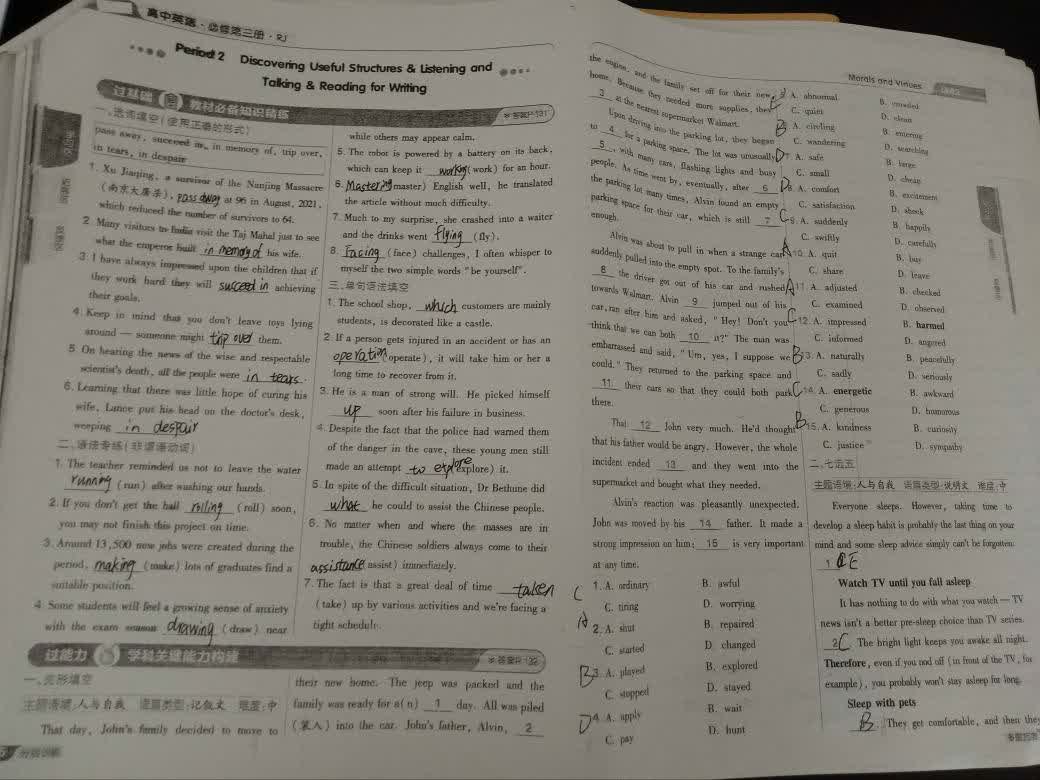 高中英语·必修第三册·RJ
Period 2 Discovering Useful Structures & Listening and
Talking & Reading for Writing
过基础 教材必备知识精练
答案P131
一、选词填空(使用正确的形式)
pass away, succeed in, in memory of, trip over,
in tears, in despair
1. Xu Jiaqing, a survivor of the Nanjing Massacre
(南京大屠杀), pass away at 96 in August, 2021,
which reduced the number of survivors to 64.
2. Many visitors to India visit the Taj Mahal just to see
what the emperor built in memory of his wife.
3. I have always impressed upon the children that if
they work hard they will succeed in achieving
their goals.
4. Keep in mind that you don't leave toys lying
around — someone might trip over them.
5. On hearing the news of the wise and respectable
scientist's death, all the people were in tears.
6. Learning that there was little hope of curing his
wife, Lance put his head on the doctor's desk,
weeping in despair
二、语法专练(非谓语动词)
1. The teacher reminded us not to leave the water
running (run) after washing our hands.
2. If you don't get the ball rolling (roll) soon,
you may not finish this project on time.
3. Around 13,500 new jobs were created during the
period, making (make) lots of graduates find a
suitable position.
4. Some students will feel a growing sense of anxiety
with the exam season drawing (draw) near
while others may appear calm.
5. The robot is powered by a battery on its back,
which can keep it working (work) for an hour.
6. Mastering (master) English well, he translated
the article without much difficulty.
7. Much to my surprise, she crashed into a waiter
and the drinks went flying (fly).
8. Facing (face) challenges, I often whisper to
myself the two simple words "be yourself".
三、单句语法填空
1. The school shop, which customers are mainly
students, is decorated like a castle.
2. If a person gets injured in an accident or has an
operation (operate), it will take him or her a
long time to recover from it.
3. He is a man of strong will. He picked himself
up soon after his failure in business.
4. Despite the fact that the police had warned them
of the danger in the cave, these young men still
made an attempt to explore (explore) it.
5. In spite of the difficult situation, Dr Bethune did
what he could to assist the Chinese people.
6. No matter when and where the masses are in
trouble, the Chinese soldiers always come to their
assistance (assist) immediately.
7. The fact is that a great deal of time taken
(take) up by various activities and we're facing a
tight schedule.
过能力 学科关键能力构建
答案P132
一、完形填空
主题语境:人与自我 语篇类型:记叙文 难度:中
That day, John's family decided to move to
their new home. The jeep was packed and the
family was ready for a(n) 1 day. All was piled
(装入) into the car. John's father, Alvin, 2
分级训练
Morals and Virtues
the engine, and the family set off for their new
home. Because they needed more supplies, they
3 at the nearest supermarket Walmart.
Upon driving into the parking lot, they began
to 4 for a parking space. The lot was unusually
5, with many cars, flashing lights and busy
people. As time went by, eventually, after 6
the parking lot many times, Alvin found an empty
parking space for their car, which is still 7
enough.
Alvin was about to pull in when a strange car
suddenly pulled into the empty spot. To the family's
8 the driver got out of his car and rushed
towards Walmart. Alvin 9 jumped out of his
car, ran after him and asked, "Hey! Don't you
think that we can both 10 it?" The man was
embarrassed and said, "Um, yes, I suppose we
could." They returned to the parking space and
11 their cars so that they could both park
there.
That 12 John very much. He'd thought
that his father would be angry. However, the whole
incident ended 13 and they went into the
supermarket and bought what they needed.
Alvin's reaction was pleasantly unexpected.
John was moved by his 14 father. It made a
strong impression on him: 15 is very important
at any time.
C 1. A. ordinary B. awful
C. tiring D. worrying
A 2. A. shut B. repaired
C. started D. changed
B 3. A. played B. explored
C. stopped D. stayed
D 4. A. apply B. wait
C. pay D. hunt
5. A. abnormal B. crowded
C. quiet D. clean
B 6. A. circling B. entering
C. wandering D. searching
D 7. A. safe B. large
C. small D. cheap
D 8. A. comfort B. excitement
C. satisfaction D. shock
C 9. A. suddenly B. happily
C. swiftly D. carefully
A 10. A. quit B. buy
C. share D. leave
A 11. A. adjusted B. checked
C. examined D. observed
C 12. A. impressed B. harmed
C. informed D. angered
B 13. A. naturally B. peacefully
C. sadly D. seriously
C 14. A. energetic B. awkward
C. generous D. humorous
B 15. A. kindness B. curiosity
C. justice D. sympathy
二、七选五
主题语境:人与自我 语篇类型:说明文 难度:中
Everyone sleeps. However, taking time to
develop a sleep habit is probably the last thing on your
mind and some sleep advice simply can't be forgotten.
1 E
Watch TV until you fall asleep
It has nothing to do with what you watch — TV
news isn't a better pre-sleep choice than TV series.
2 C The bright light keeps you awake all night.
Therefore, even if you nod off (in front of the TV, for
example), you probably won't stay asleep for long.
Sleep with pets
B. They get comfortable, and then they